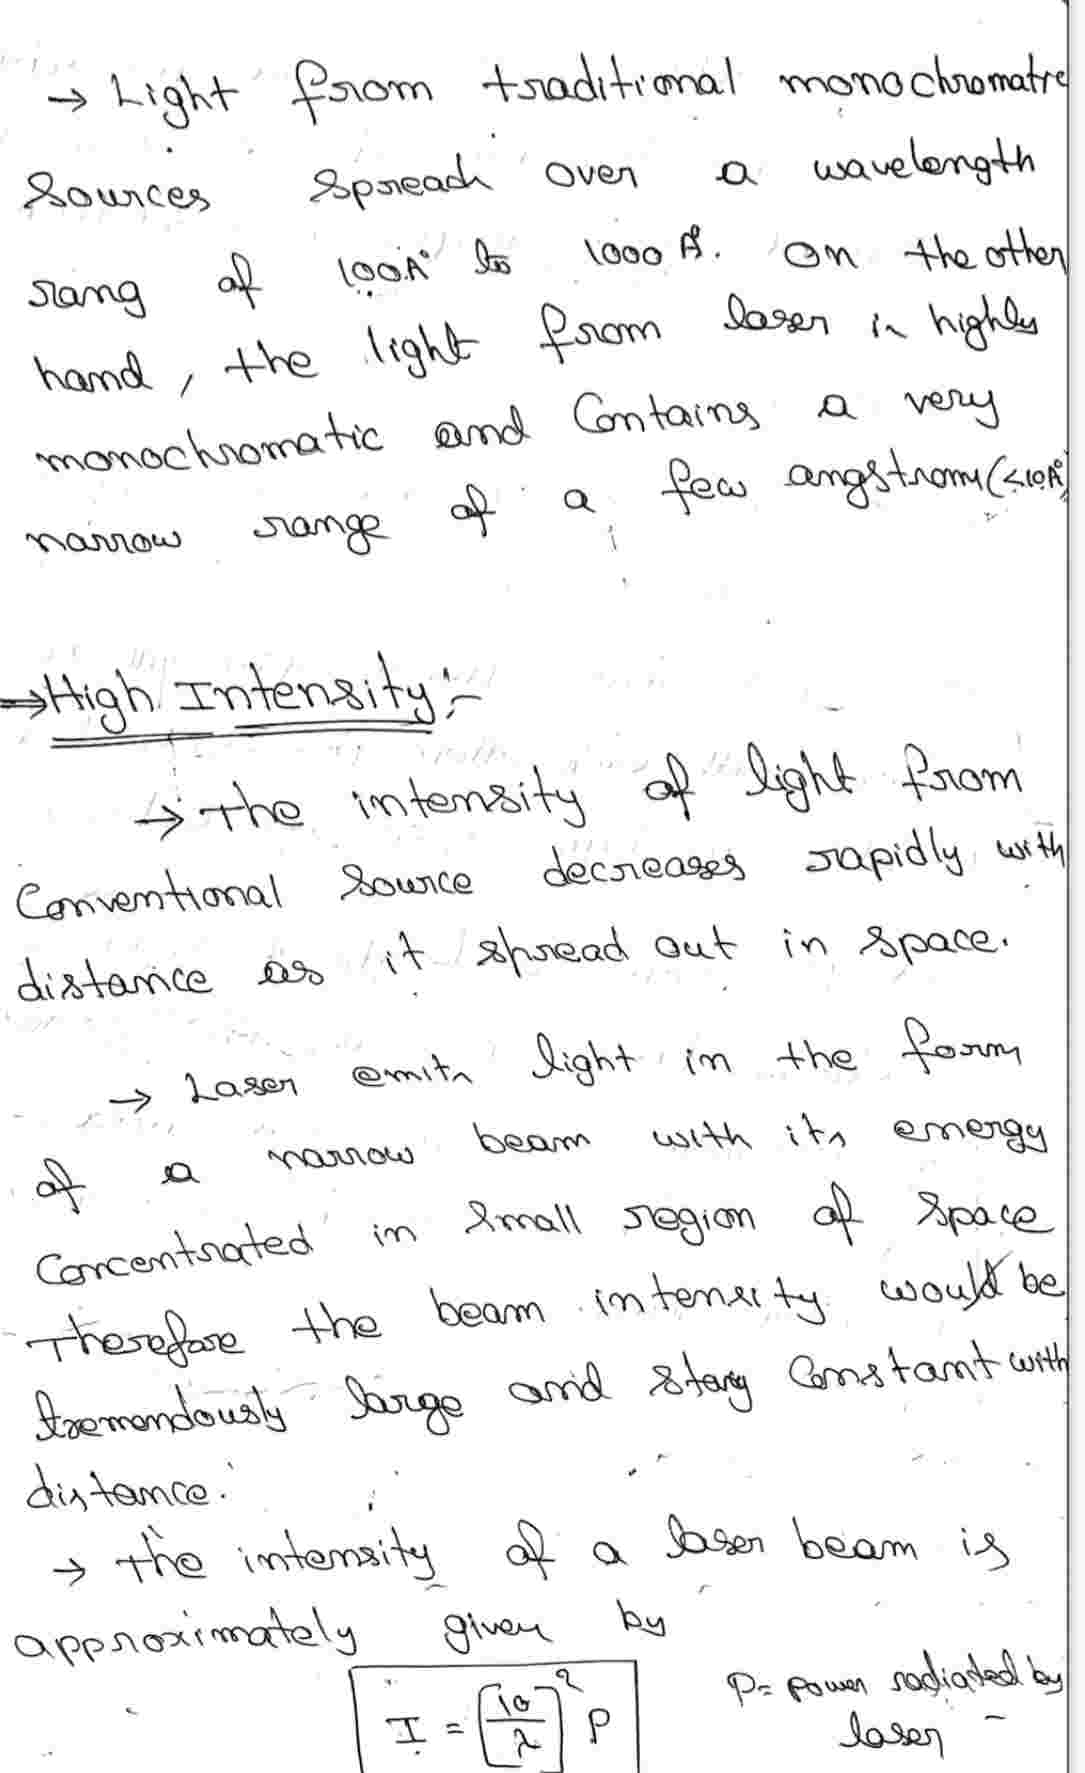 → Light from traditional monochromatic
sources spreads over a wavelength
rang of 100A° to 1000 A°. On the other
hand, the light from laser is highly
monochromatic and contains a very
narrow range of a few angstrom (<10A°)
⇒ High Intensity :-
→ The intensity of light from
Conventional source decreases rapidly with
distance as it spread out in space.
→ Laser emits light in the form
of a narrow beam with its energy
concentrated in small region of space
Therefore the beam intensity would be
tremendously large and stay constant with
distance.
→ The intensity of a laser beam is
approximately given by
I = [10/λ]² P
P= power radiated by
laser